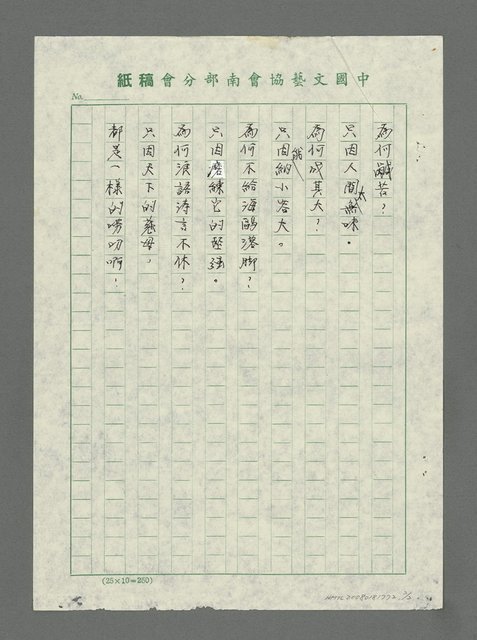 中國文藝協會南部分會稿紙
No.
為何鹹苦？
只因人間太無味。
為何成其大？
只因能納小容大。
為何不給海鷗落腳？
只因磨練它的堅強。
為何浪語濤言不休？
只因天下的慈母，
都是一樣的嘮叨啊！
(25×10=250)